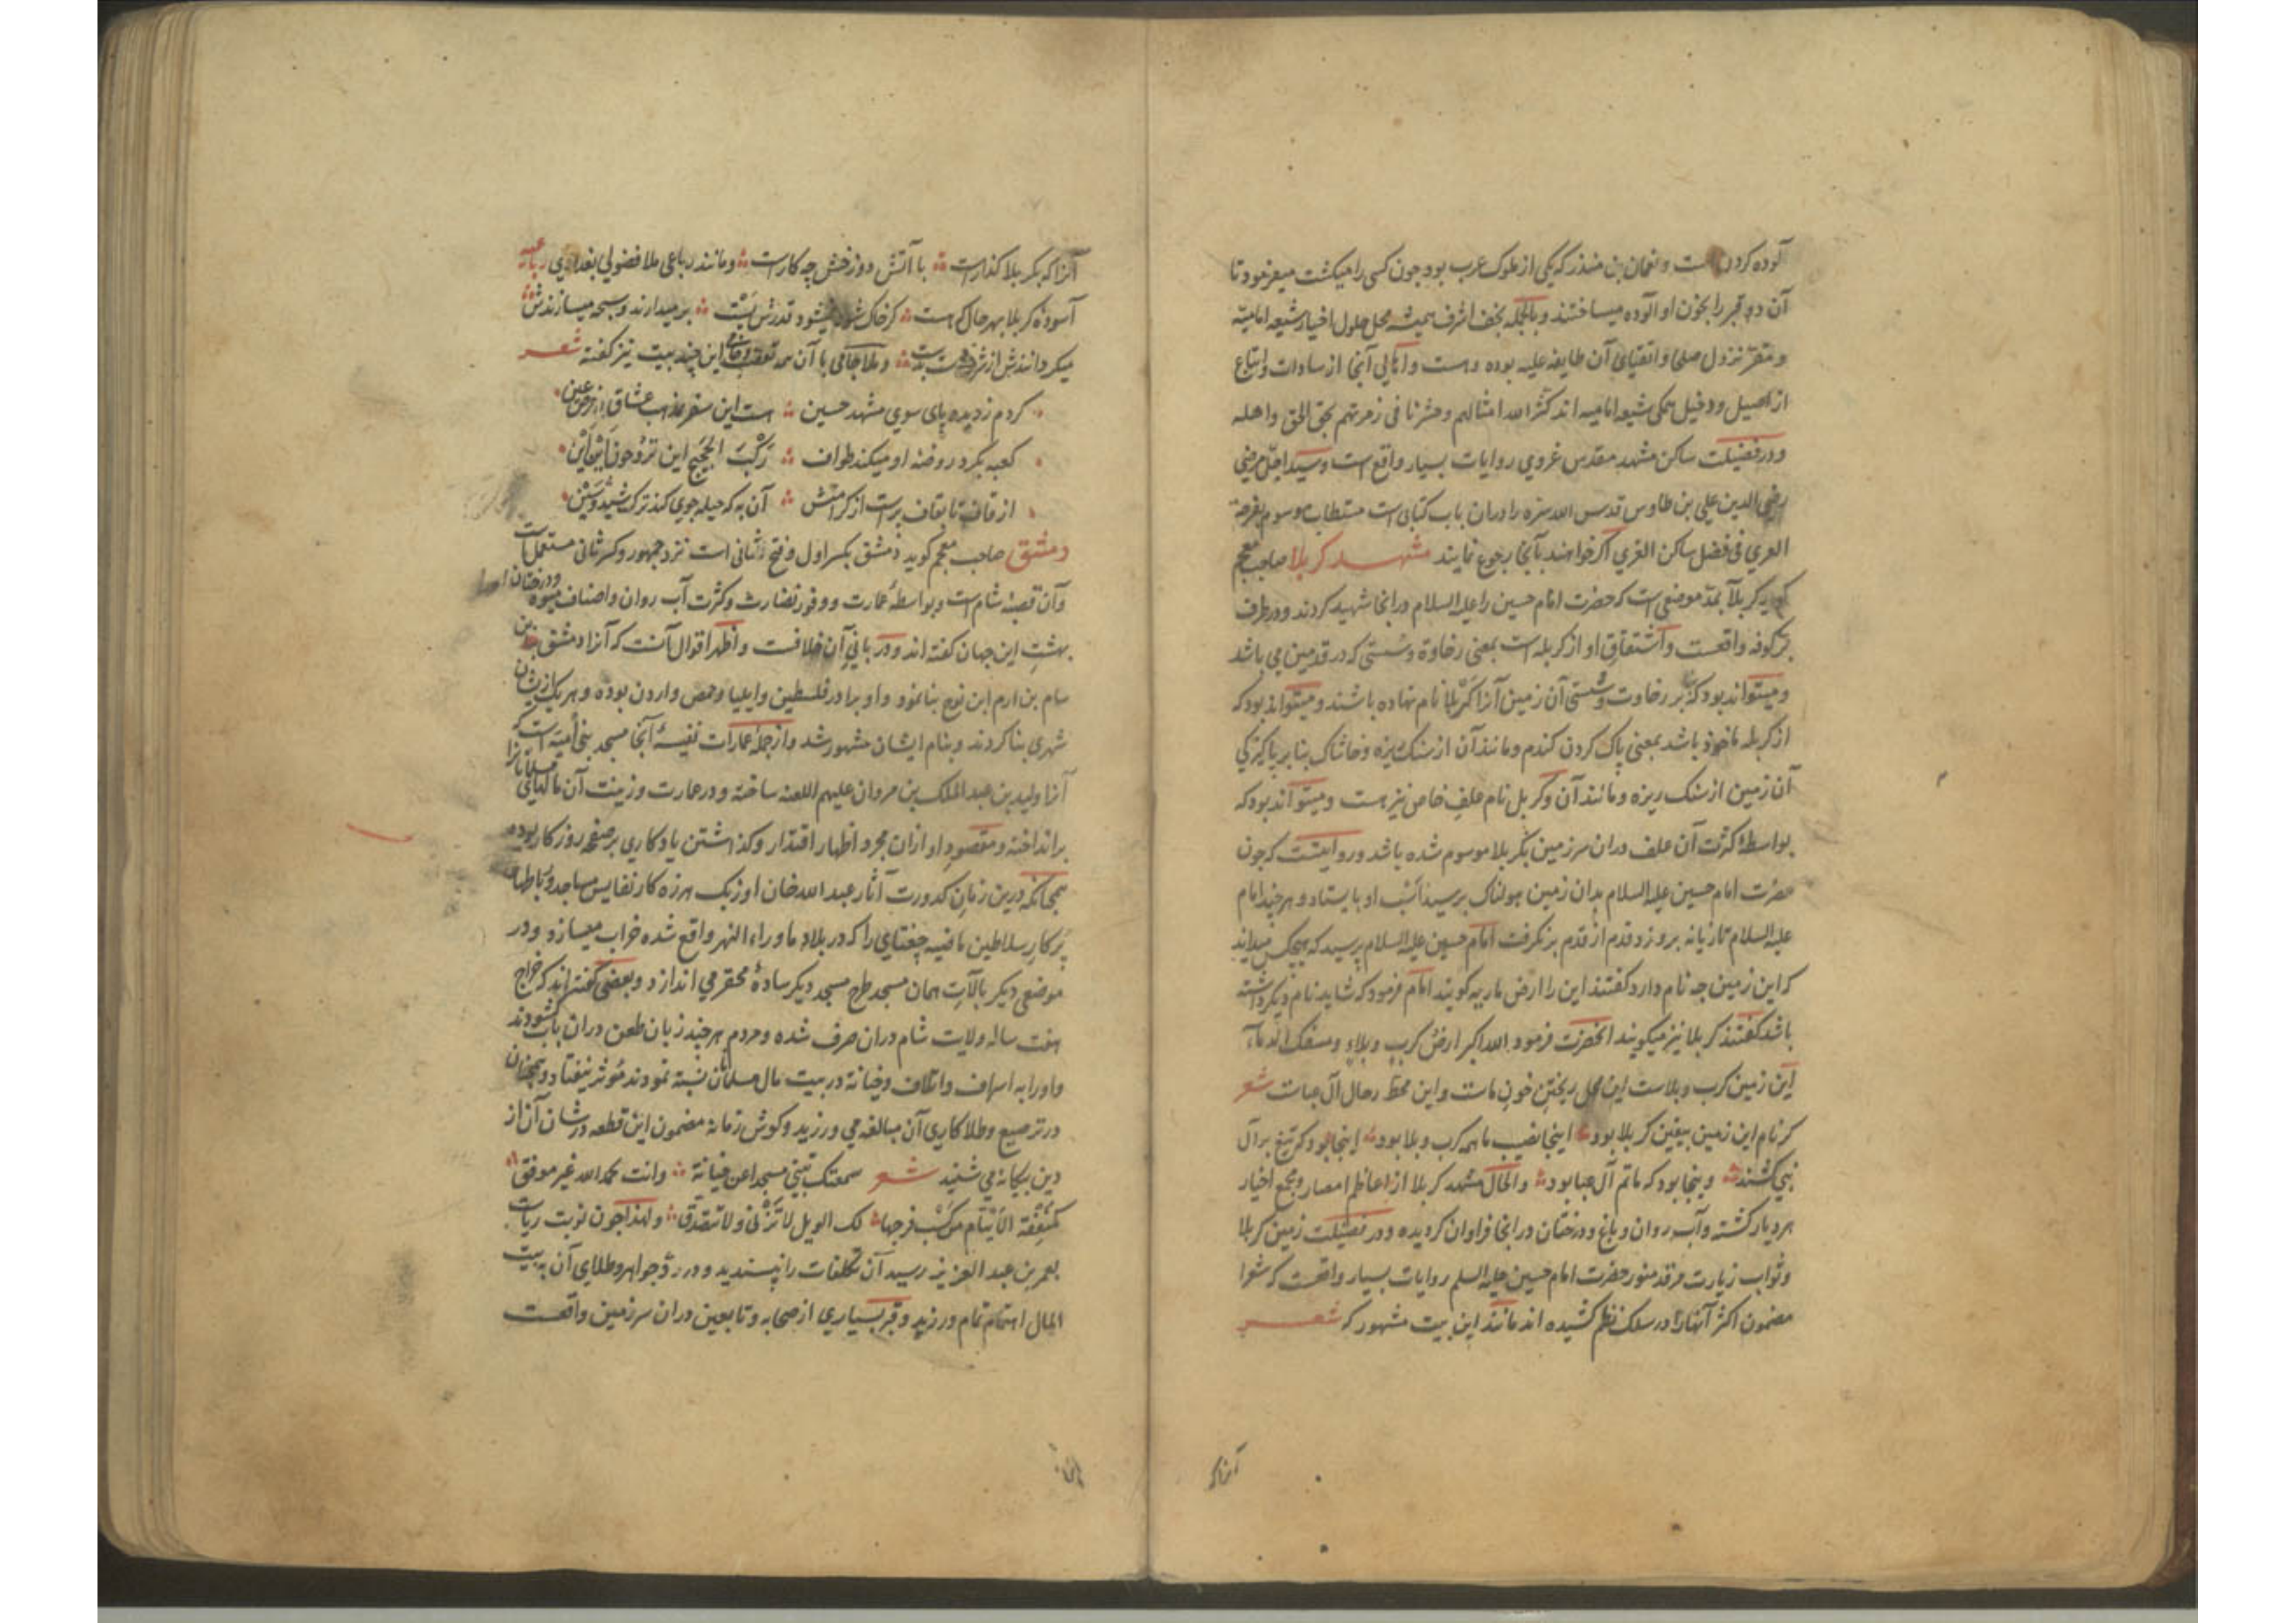 آلوده کردن است و نعمان بن منذر که یکی از ملوک عرب بود چون کسی را میکشت میفرمود تا
آن دو قبر را بخون او آلوده میساختند و بالجمله نجف اشرف همیشه محل حلول اخیار شیعه امامیه
و مقر نزول صلحا و اتقیای آن طایفه علیه بوده و هست و اهالی آنجا از سادات و اتباع
از اصیل و دخیل همگی شیعه امامیه اند کثر الله امثالهم و حشرنا فی زمرتهم بحق الحق و اهله
و در فضیلت ساکن مشهد مقدس غروی روایات بسیار واقع است و سید اجل مرضی
رضی الدین علی بن طاوس قدس الله سره را دران باب کتابی است مستطاب موسوم بفرحة
الغری فی فضل ساکن الغری اکر خواهند بآنجا رجوع نمایند مشهد کربلا صاحب معجم
کوید کربلا بمد موضعی است که حضرت امام حسین را علیه السلام درانجا شهید کردند و در طرف
بر کوفه واقعست و اشتقاق او از کربله است بمعنی رخاوة و سستی که در قدمین می باشد
و میتواند بود که بنابر رخاوت و سستی آن زمین آنرا کربلا نام نهاده باشند و میتواند بود که
از کربله ماخوذ باشد بمعنی پاک کردن کندم و مانند آن از سنک ریزه و خاشاک بنابر پاکیزکی
آن زمین از سنک ریزه و مانند آن و کربل نام علف خاص نیز هست و میتواند بود که
بواسطه کثرت آن علف دران سرزمین بکربلا موسوم شده باشد و روایتست که چون
حضرت امام حسین علیه السلام بدان زمین هولناک برسید اسب او بایستاد و هر چند امام
علیه السلام تازیانه برو زد قدم از قدم بر نکرفت امام حسین علیه السلام پرسید که هیچکس میداند
که این زمین چه نام دارد کفتند این را ارض ماریه کویند امام فرمود که شاید نام دیکر داشته
باشد کفتند کربلا نیز میکویند آنحضرت فرمود الله اکبر ارض کرب و بلاء و مسفک الدماء
این زمین کرب و بلاست این محل ریختن خون ماست و این محط رحال آل عباست شعر
کر نام این زمین بیقین کربلا بود اینجا نصیب ما همه کرب و بلا بود اینجا بود که تیغ بر آل
نبی کشند وینجا بود که ماتم آل عبا بود و الحال مشهد کربلا از اعاظم امصار و مجمع اخیار
هر دیار کشته و آب روان و باغ و درختان درانجا فراوان کردیده و در فضیلت زمین کربلا
و ثواب زیارت مرقد منور حضرت امام حسین علیه السلم روایات بسیار واقعست که شعرا
مضمون اکثر آنها را در سلک نظم کشیده اند مانند این بیت مشهور که شعر
آنرا که
آنرا که بکربلا کذارست با آتش دوزخش چه کارست و مانند رباعی ملا فضولی بغدادی
آسوده کربلا بهر حال که هست کر خاک شود نمیشود قدرش پست بر میدارند و سبحه میسازندش
میکردانندش از شرف دست بدست و ملا جامی با آن همه تعصب این چند بیت نیز کفته شعر
کردم ز دیده پای سوی مشهد حسین هست این سفر بمذهب عشاق فرض عین
کعبه بکرد روضه او میکند طواف رکب الحجیج این تروحون این این
از قاف تا بقاف پر است از کرامتش آن به که حیله جوی کند ترک شید و شین
دمشق صاحب معجم کوید دمشق بکسر اول و فتح ثانی است نزد جمهور و کسر ثانی مستعمل است
و آن قصبه شام است و بواسطه عمارت و وفور نضارت و کثرت آب روان و اصناف میوه و درختان
بهشت این جهان کفته اند و در بانی آن خلافست و اظهر اقوال آنست که آنرا دمشق بن
سام بن ارم ابن نوح بنا نمود و او برادر فلسطین و ایلیا و حمص و اردن بوده و هر یک ازیشان
شهری بنا کردند و بنام ایشان مشهور شد و از جمله عمارات نفیسه آنجا مسجد بنی امیه است که
آنرا ولید بن عبد الملک بن مروان علیهم اللعنه ساخته و در عمارت و زینت آن مالهای مسلمانانرا
بر انداخته و مقصود او ازان مجرد اظهار اقتدار و کذاشتن یادکاری بر صفحه روزکار بوده
همچنانکه درین زمان کدورت آثار عبد الله خان اوزبک هرزه کار نفایس مساجد و رباطهاء
پر کار سلاطین ماضیه چغتای را که در بلاد ماوراء النهر واقع شده خراب میسازد و در
موضعی دیکر بآلات همان مسجد طرح مسجد دیکر ساده محقر می اندازد و بعضی کفته اند که خراج
هفت ساله ولایت شام دران صرف شده و مردم هر چند زبان طعن دران باب کشودند
و او را به اسراف و اتلاف و خیانة در بیت مال مسلمانان نسبة نمودند مؤثر نیفتاد و همچنان
در ترصیع و طلاکاری آن مبالغه می ورزید و کوش زمانه مضمون این قطعه در شان آن از
دین بیکانه می شنید شعر سمعتک تبنی مسجدا عن خیانة وانت بحمد الله غیر موفق
کمعتقة الایتام من کسب فرجها لک الویل لا تزنی ولا تتصدق و لهذا چون نوبت ریاست
بعمر بن عبد العزیز رسید آن تکلفات را نپسندید و در رد جواهر و طلای آن به بیت
المال اهتمام تمام ورزید و قبر بسیاری از صحابه و تابعین دران سرزمین واقعست